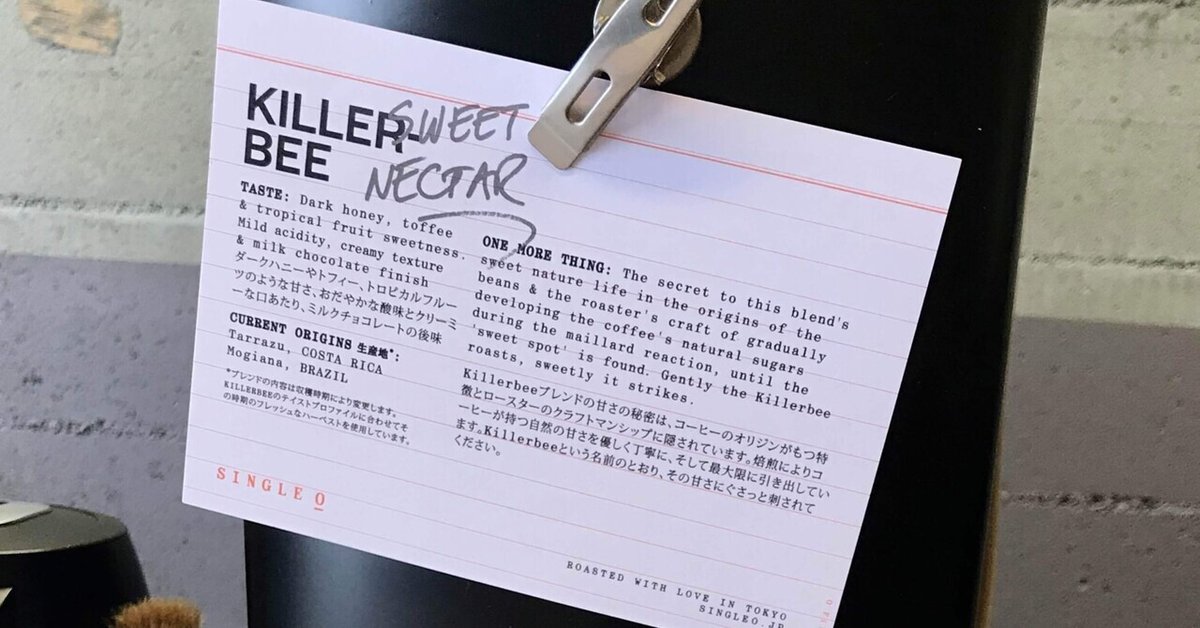 KILLER-
BEE
SWEET
NECTAR
TASTE: Dark honey, toffee
& tropical fruit sweetness.
Mild acidity, creamy texture
& milk chocolate finish
ダークハニーやトフィー、トロピカルフルー
ツのような甘さ、おだやかな酸味とクリーミ
ーな口あたり、ミルクチョコレートの後味
CURRENT ORIGINS 生産地*:
Tarrazu, COSTA RICA
Mogiana, BRAZIL
*ブレンドの内容は収穫時期により変更します。
KILLERBEEのテイストプロファイルに合わせてそ
の時期のフレッシュなハーベストを使用しています。
SINGLE O
ONE MORE THING: The secret to this blend's
sweet nature life in the origins of the
beans & the roaster's craft of gradually
developing the coffee's natural sugars
during the maillard reaction, until the
'sweet spot' is found. Gently the Killerbee
roasts, sweetly it strikes.
Killerbeeブレンドの甘さの秘密は、コーヒーのオリジンがもつ特
徴とロースターのクラフトマンシップに隠されています。焙煎によりコ
ーヒーが持つ自然の甘さを優しく丁寧に、そして最大限に引き出してい
ます。Killerbeeという名前のとおり、その甘さにぐさっと刺されて
ください。
ROASTED WITH LOVE IN TOKYO
SINGLEO.JP